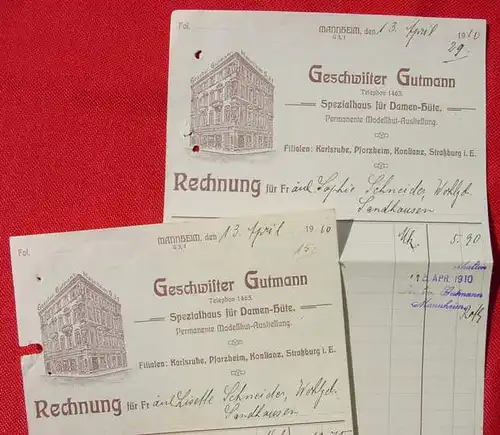 Fol.
MANNHEIM, den 13. April 1910
G 3, 1
29.
Geschwister Gutmann
Telephon 1463.
Spezialhaus für Damen-Hüte.
Permanente Modellhut-Ausstellung.
Filialen: Karlsruhe, Pforzheim, Konstanz, Straßburg i. E.
Rechnung für Fräul. Sophie Schneider, Wohlgb.
Sandhausen
5.90
APR. 1910
Gutmann
Mannheim
Fol.
MANNHEIM, den 13. April 1910
G 3, 1
15.
Geschwister Gutmann
Telephon 1463.
Spezialhaus für Damen-Hüte.
Permanente Modellhut-Ausstellung.
Filialen: Karlsruhe, Pforzheim, Konstanz, Straßburg i. E.
Rechnung für Fräul. Lisette Schneider, Wohlgb.
Sandhausen